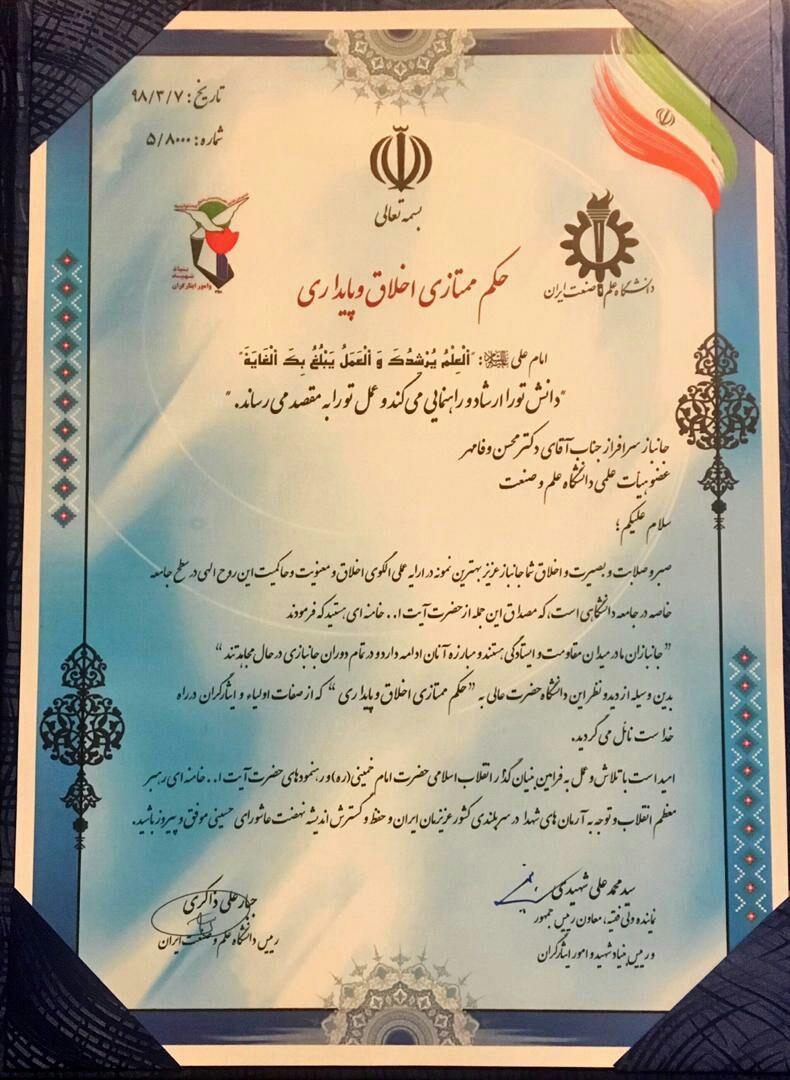 تاریخ: ۹۸/۳/۷
شماره: ۵/۸۰۰۰
بسمه تعالی
بنیاد شهید
وامور ایثارگران
دانشگاه علم و صنعت ایران
حکم ممتازی اخلاق و پایداری
امام علی: "اَلْعِلْمُ یُرْشِدُکَ وَ الْعَمَلُ یَبْلُغُ بِکَ الْغایَةَ"
"دانش تو را ارشاد و راهنمایی می کند و عمل تو را به مقصد می رساند."
جانباز سرافراز جناب آقای دکتر محسن وفامهر
عضو هیأت علمی دانشگاه علم و صنعت
سلام علیکم؛
صبر و صلابت و بصیرت و اخلاق شما جانباز عزیز بهترین نمونه در ارایه عملی الگوی اخلاق و معنویت و حاکمیت این روح الهی در سطح جامعه
خاصه در جامعه دانشگاهی است، که مصداق این جمله از حضرت آیت ا... خامنه ای هستید که فرمودند
"جانبازان ما در میدان مقاومت و ایستادگی هستند و مبارزه آنان ادامه دارد و در تمام دوران جانبازی در حال مجاهدتند"
بدین وسیله از دید و نظر این دانشگاه حضرت عالی به "حکم ممتازی اخلاق و پایداری" که از صفات اولیاء و ایثارگران در راه
خداست نائل می گردید.
امید است با تلاش و عمل به فرامین بنیان گذار انقلاب اسلامی حضرت امام خمینی(ره) و رهنمودهای حضرت آیت ا... خامنه ای رهبر
معظم انقلاب و توجه به آرمان های شهدا در سربلندی کشور عزیزمان ایران و حفظ و گسترش اندیشه نهضت عاشورای حسینی موفق و پیروز باشید.
سید محمد علی شهیدی
نماینده ولی فقیه، معاون رییس جمهور
و رییس بنیاد شهید و امور ایثارگران
جبار علی ذاکری
رییس دانشگاه علم و صنعت ایران